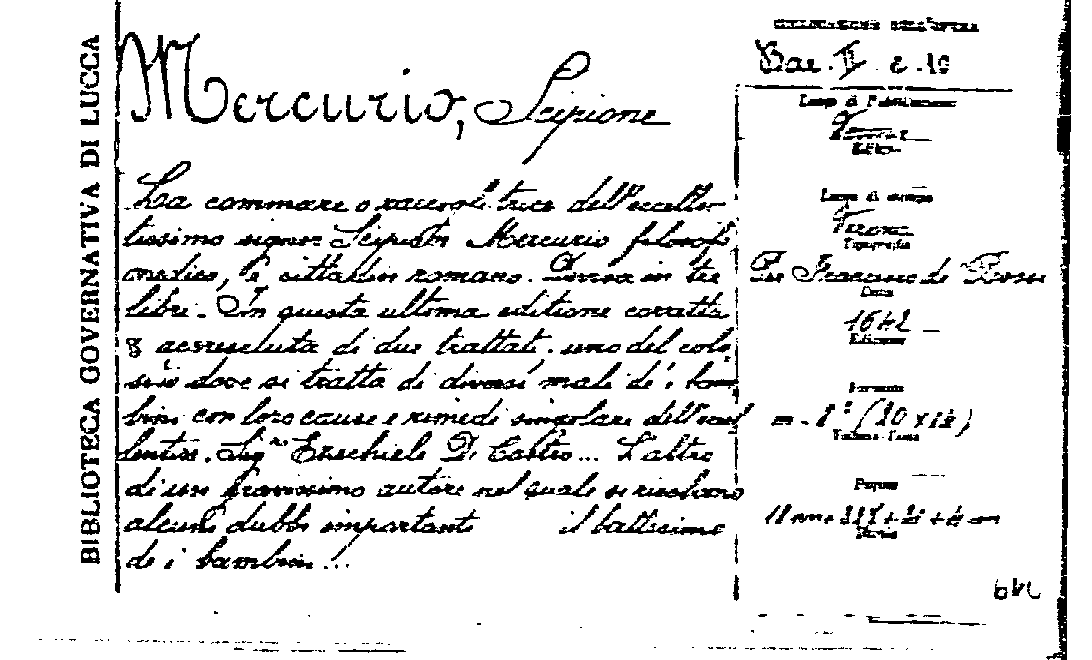 BIBLIOTECA GOVERNATIVA DI LUCCA
Mercurio, Scipione
La commare o raccoglitrice dell'eccellen
tissimo signor Scipion Mercurio filosofo
medico, e cittadin romano. Divisa in tre
libri. In questa ultima editione corretta
& accresciuta di due trattati, uno del colo
stro dove si tratta di diversi mali de i bam
bini con loro cause e rimedi singolare dell'eccel
lentiss. Sigr Ezechiele Di Castro... L'altro
di un gravissimo autore nel quale si risolvano
alcuni dubbi importanti il battesimo
de i bambini...
COLLOCAZIONE DELL'OPERA
Bac. II. c. 10
Luogo di Pubblicazione
Editore
Luogo di stampa
Verona
Tipografia
Per Francesco de Rossi
Data
1642
Edizione
Formato
in-8° (20 x 14)
Pagine